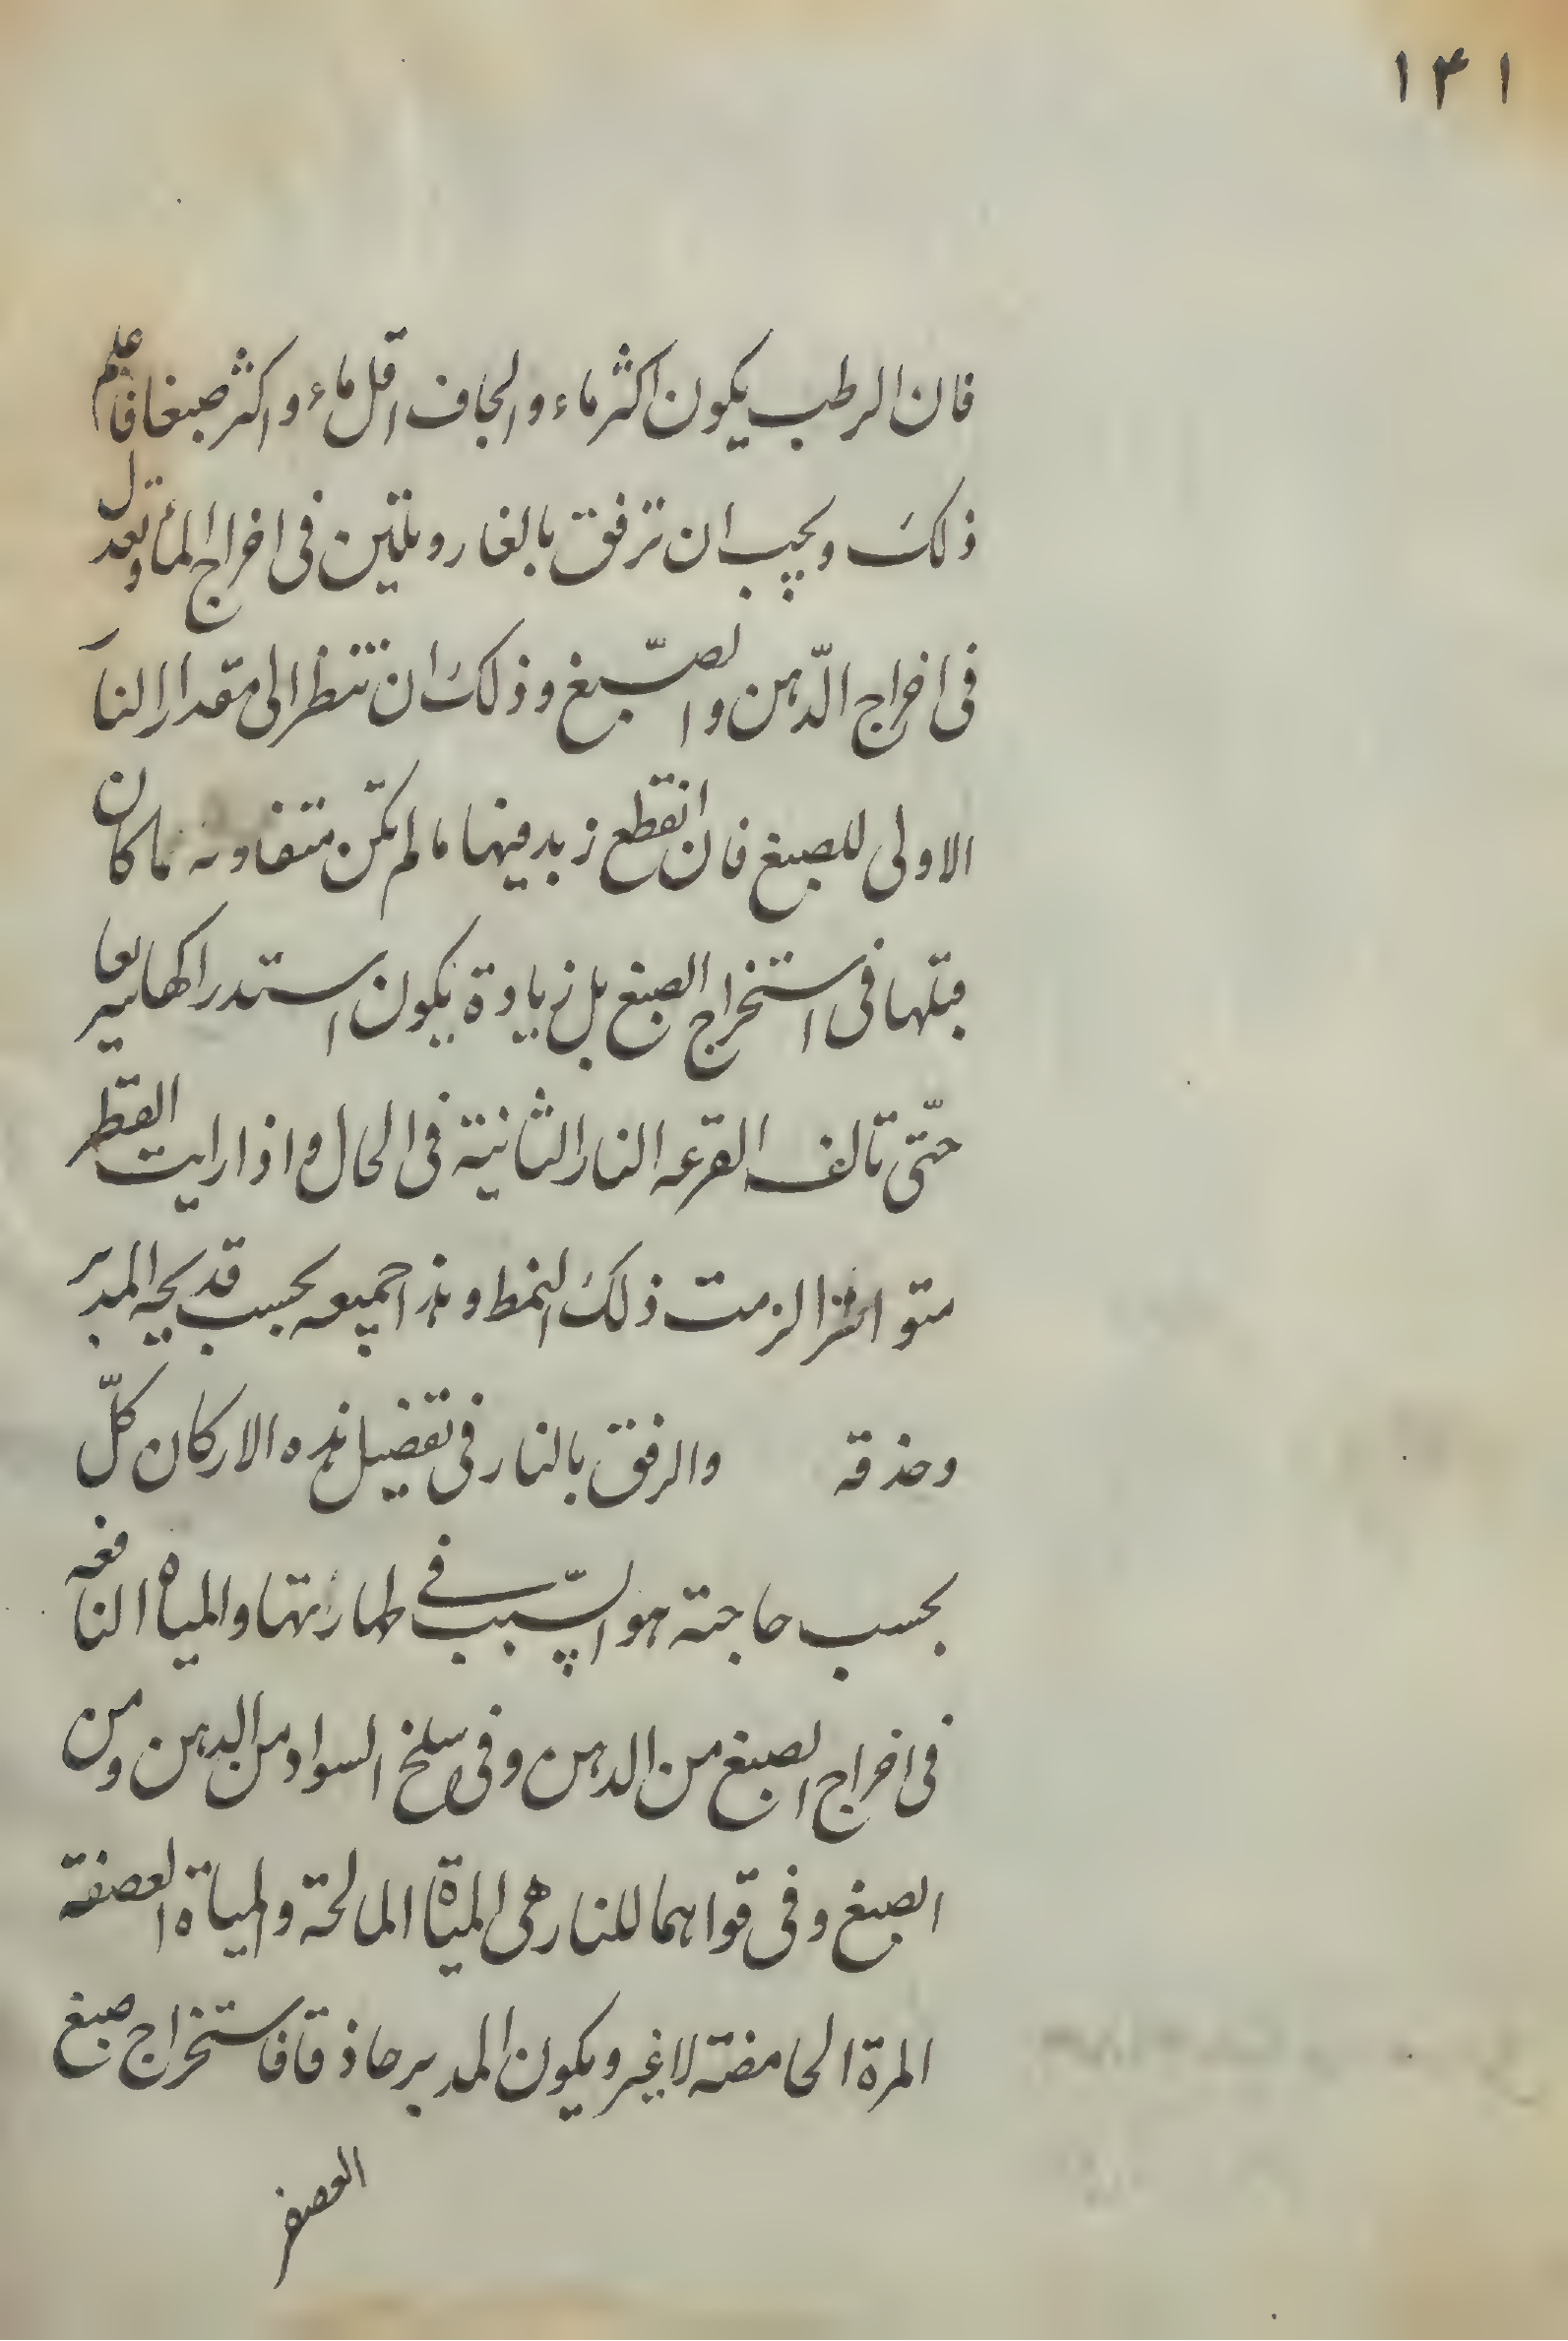 ١۴١
فان الرطب يكون اكثر ماء والجاف اقل ماء واكثر صبغا فاعلم
ذلك ويجب ان ترفق بالغار وتلين فى اخراج المأ وتعدل
فى اخراج الدّهن والصّبغ وذلك ان تنظر الى مقدار النا
الاولى للصبغ فان انقطع زيد فيها ما لم تكن متفاوته لما كان
قبلها فى استخراج الصبغ بل زيادة يكون استدراكها سريعا
حتّى تالف القرعه النار الثانية فى الحال واذا رايت القطر
متواترا لزمت ذلك النمط وهذا جميعه بحسب قد يحه المدبر
وحذقه والرفق بالنار فى تفضيل هذه الاركان كلّ
بحسب حاجته هو السّبب فى طهارتها والمياه النافعه
فى اخراج الصبغ من الدهن وفى سلخ السواد من الدهن ومن
الصبغ وفى قواهما للنار هى المياة المالحة والمياة العصفة
المرة الحامضة لا غير ويكون المدبر حاذقا فاستخراج صبغ
العصفر